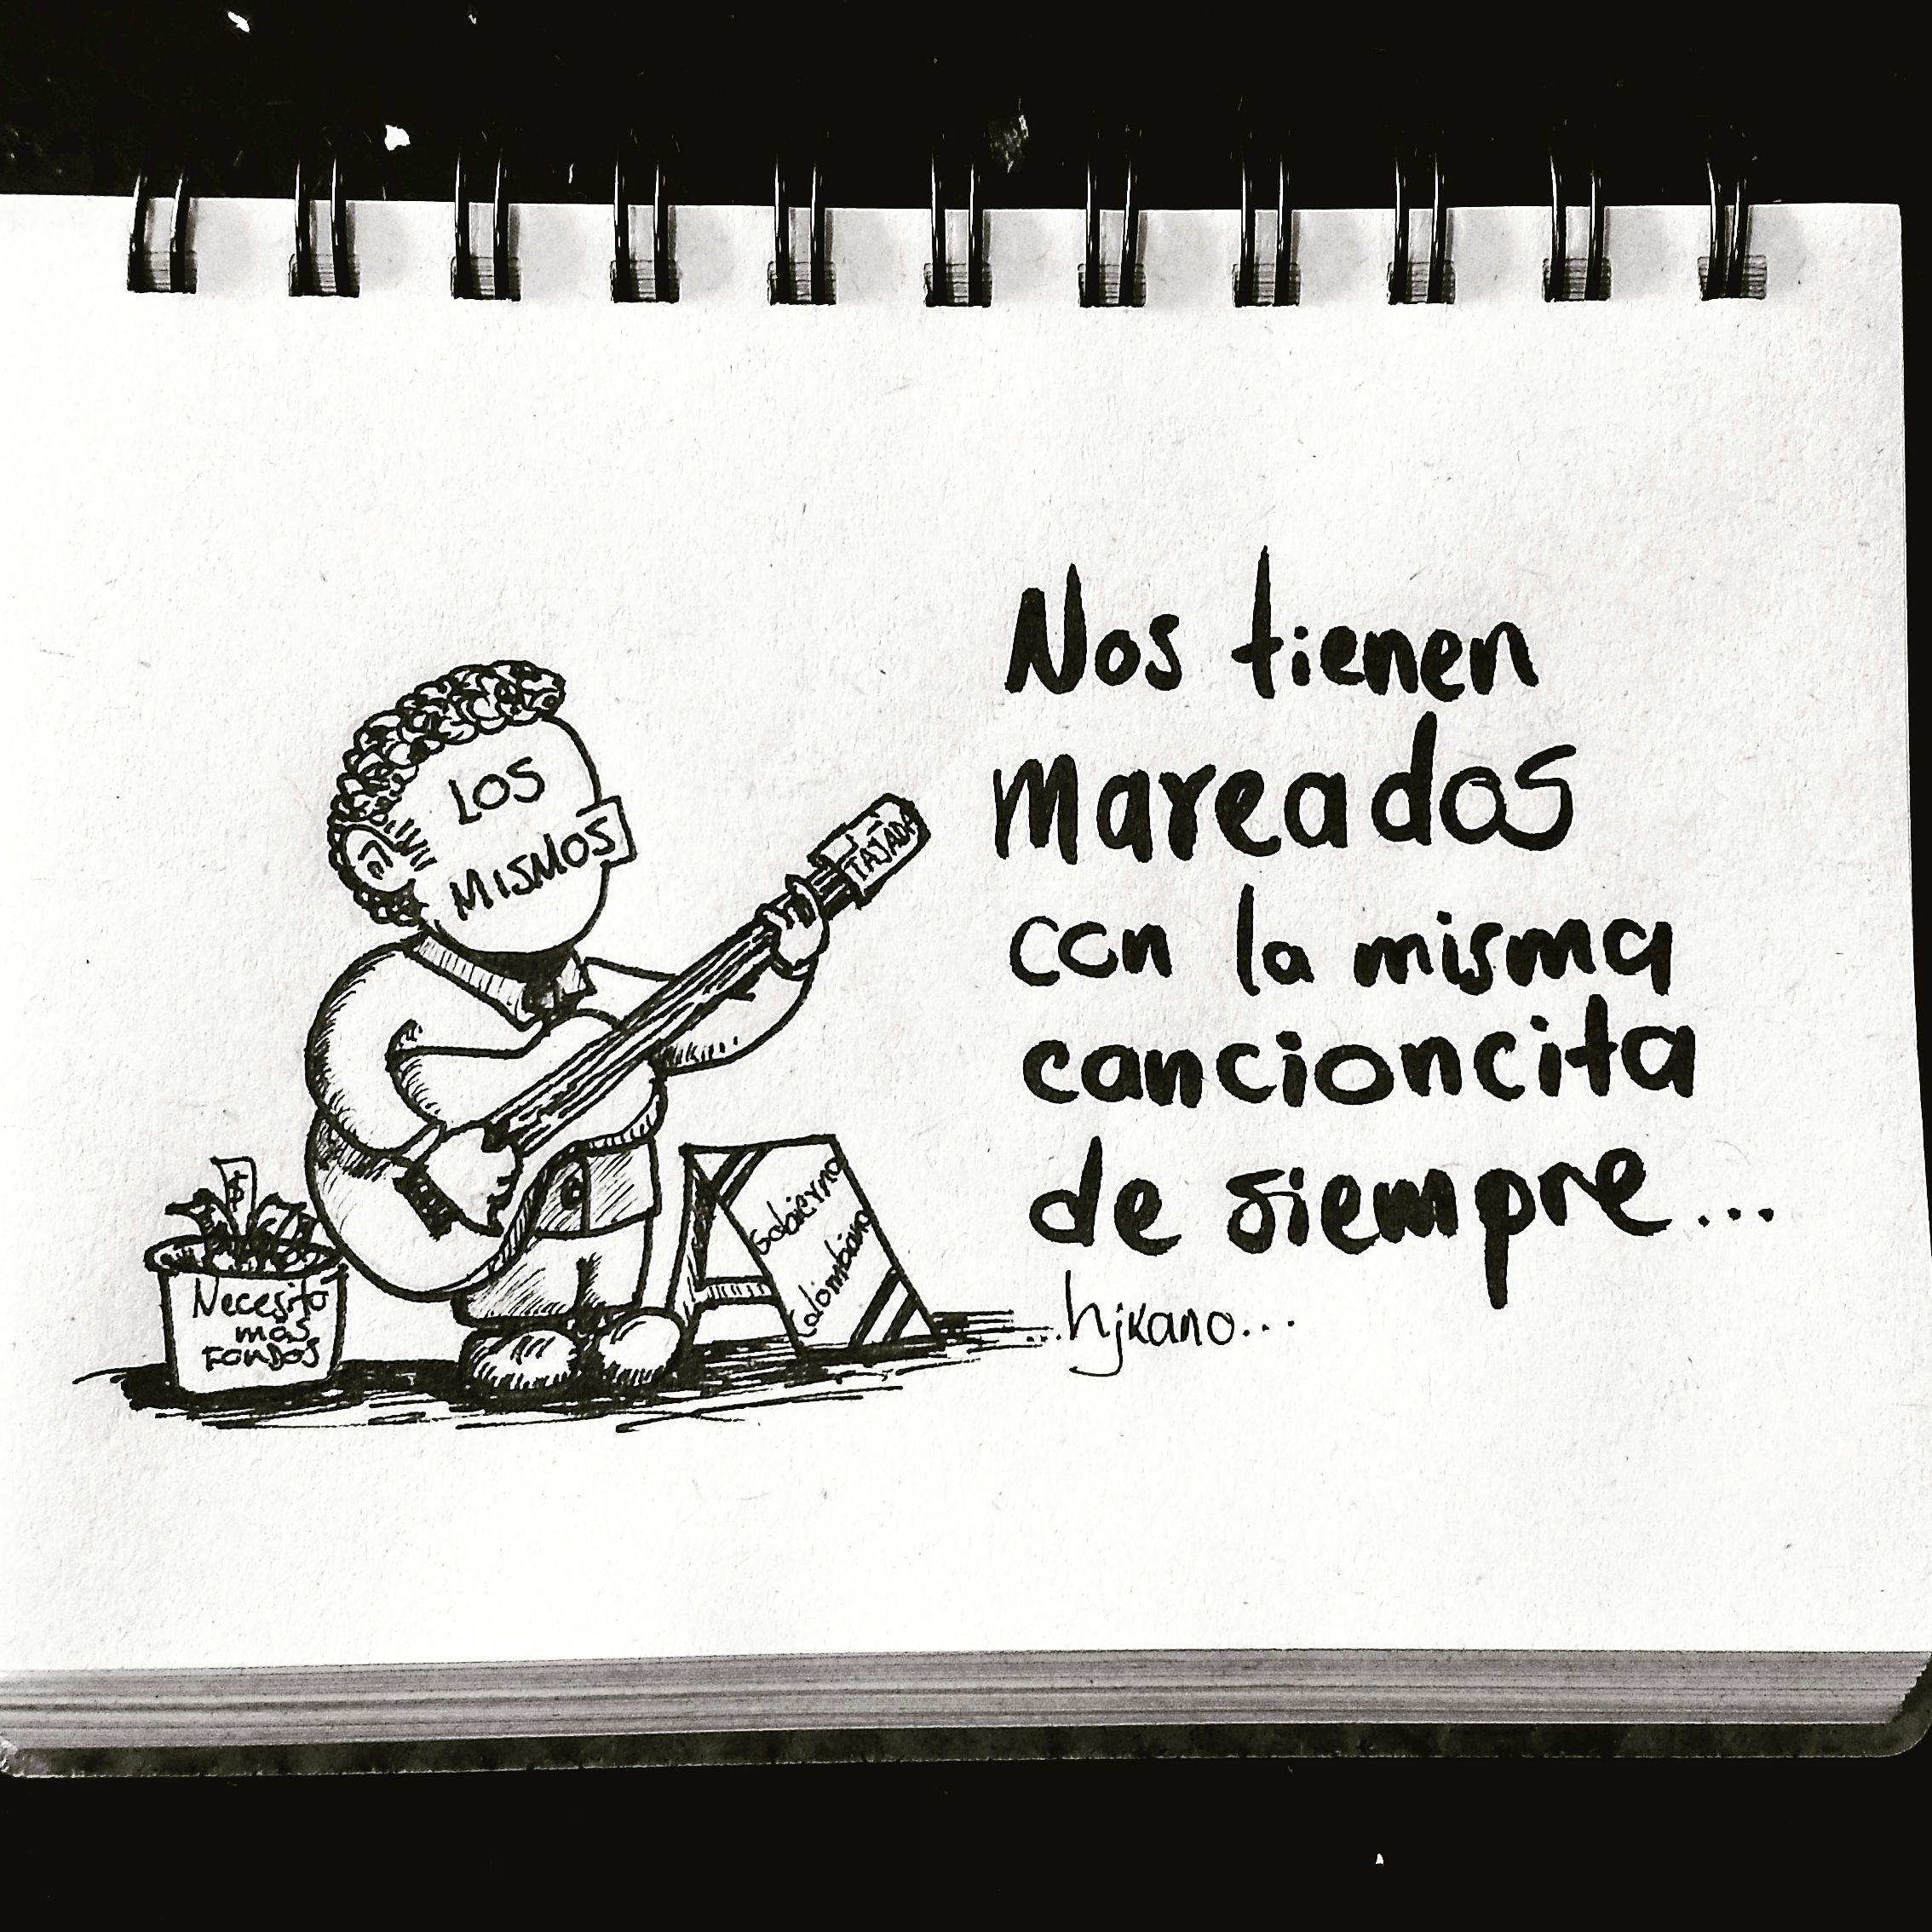 Nos tienen
mareados
con la misma
cancioncita
de siempre...
...hjkano...
LOS
MISMOS
TAJADA
Gobierno
Colombiano
$
Necesito
mas
FONDOS